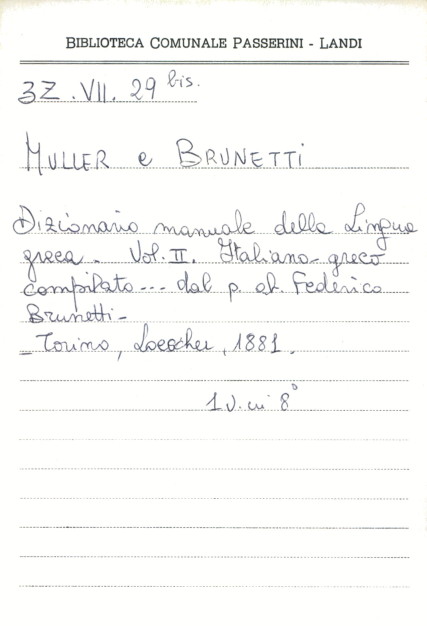 BIBLIOTECA COMUNALE PASSERINI - LANDI
3Z.VII. 29 bis.
MULLER e BRUNETTI
Dizionario manuale della Lingua
greca. Vol. II. Italiano-greco
compilato --- dal p. ab. Federico
Brunetti -
- Torino, Loescher, 1881.
1 v. in 8°